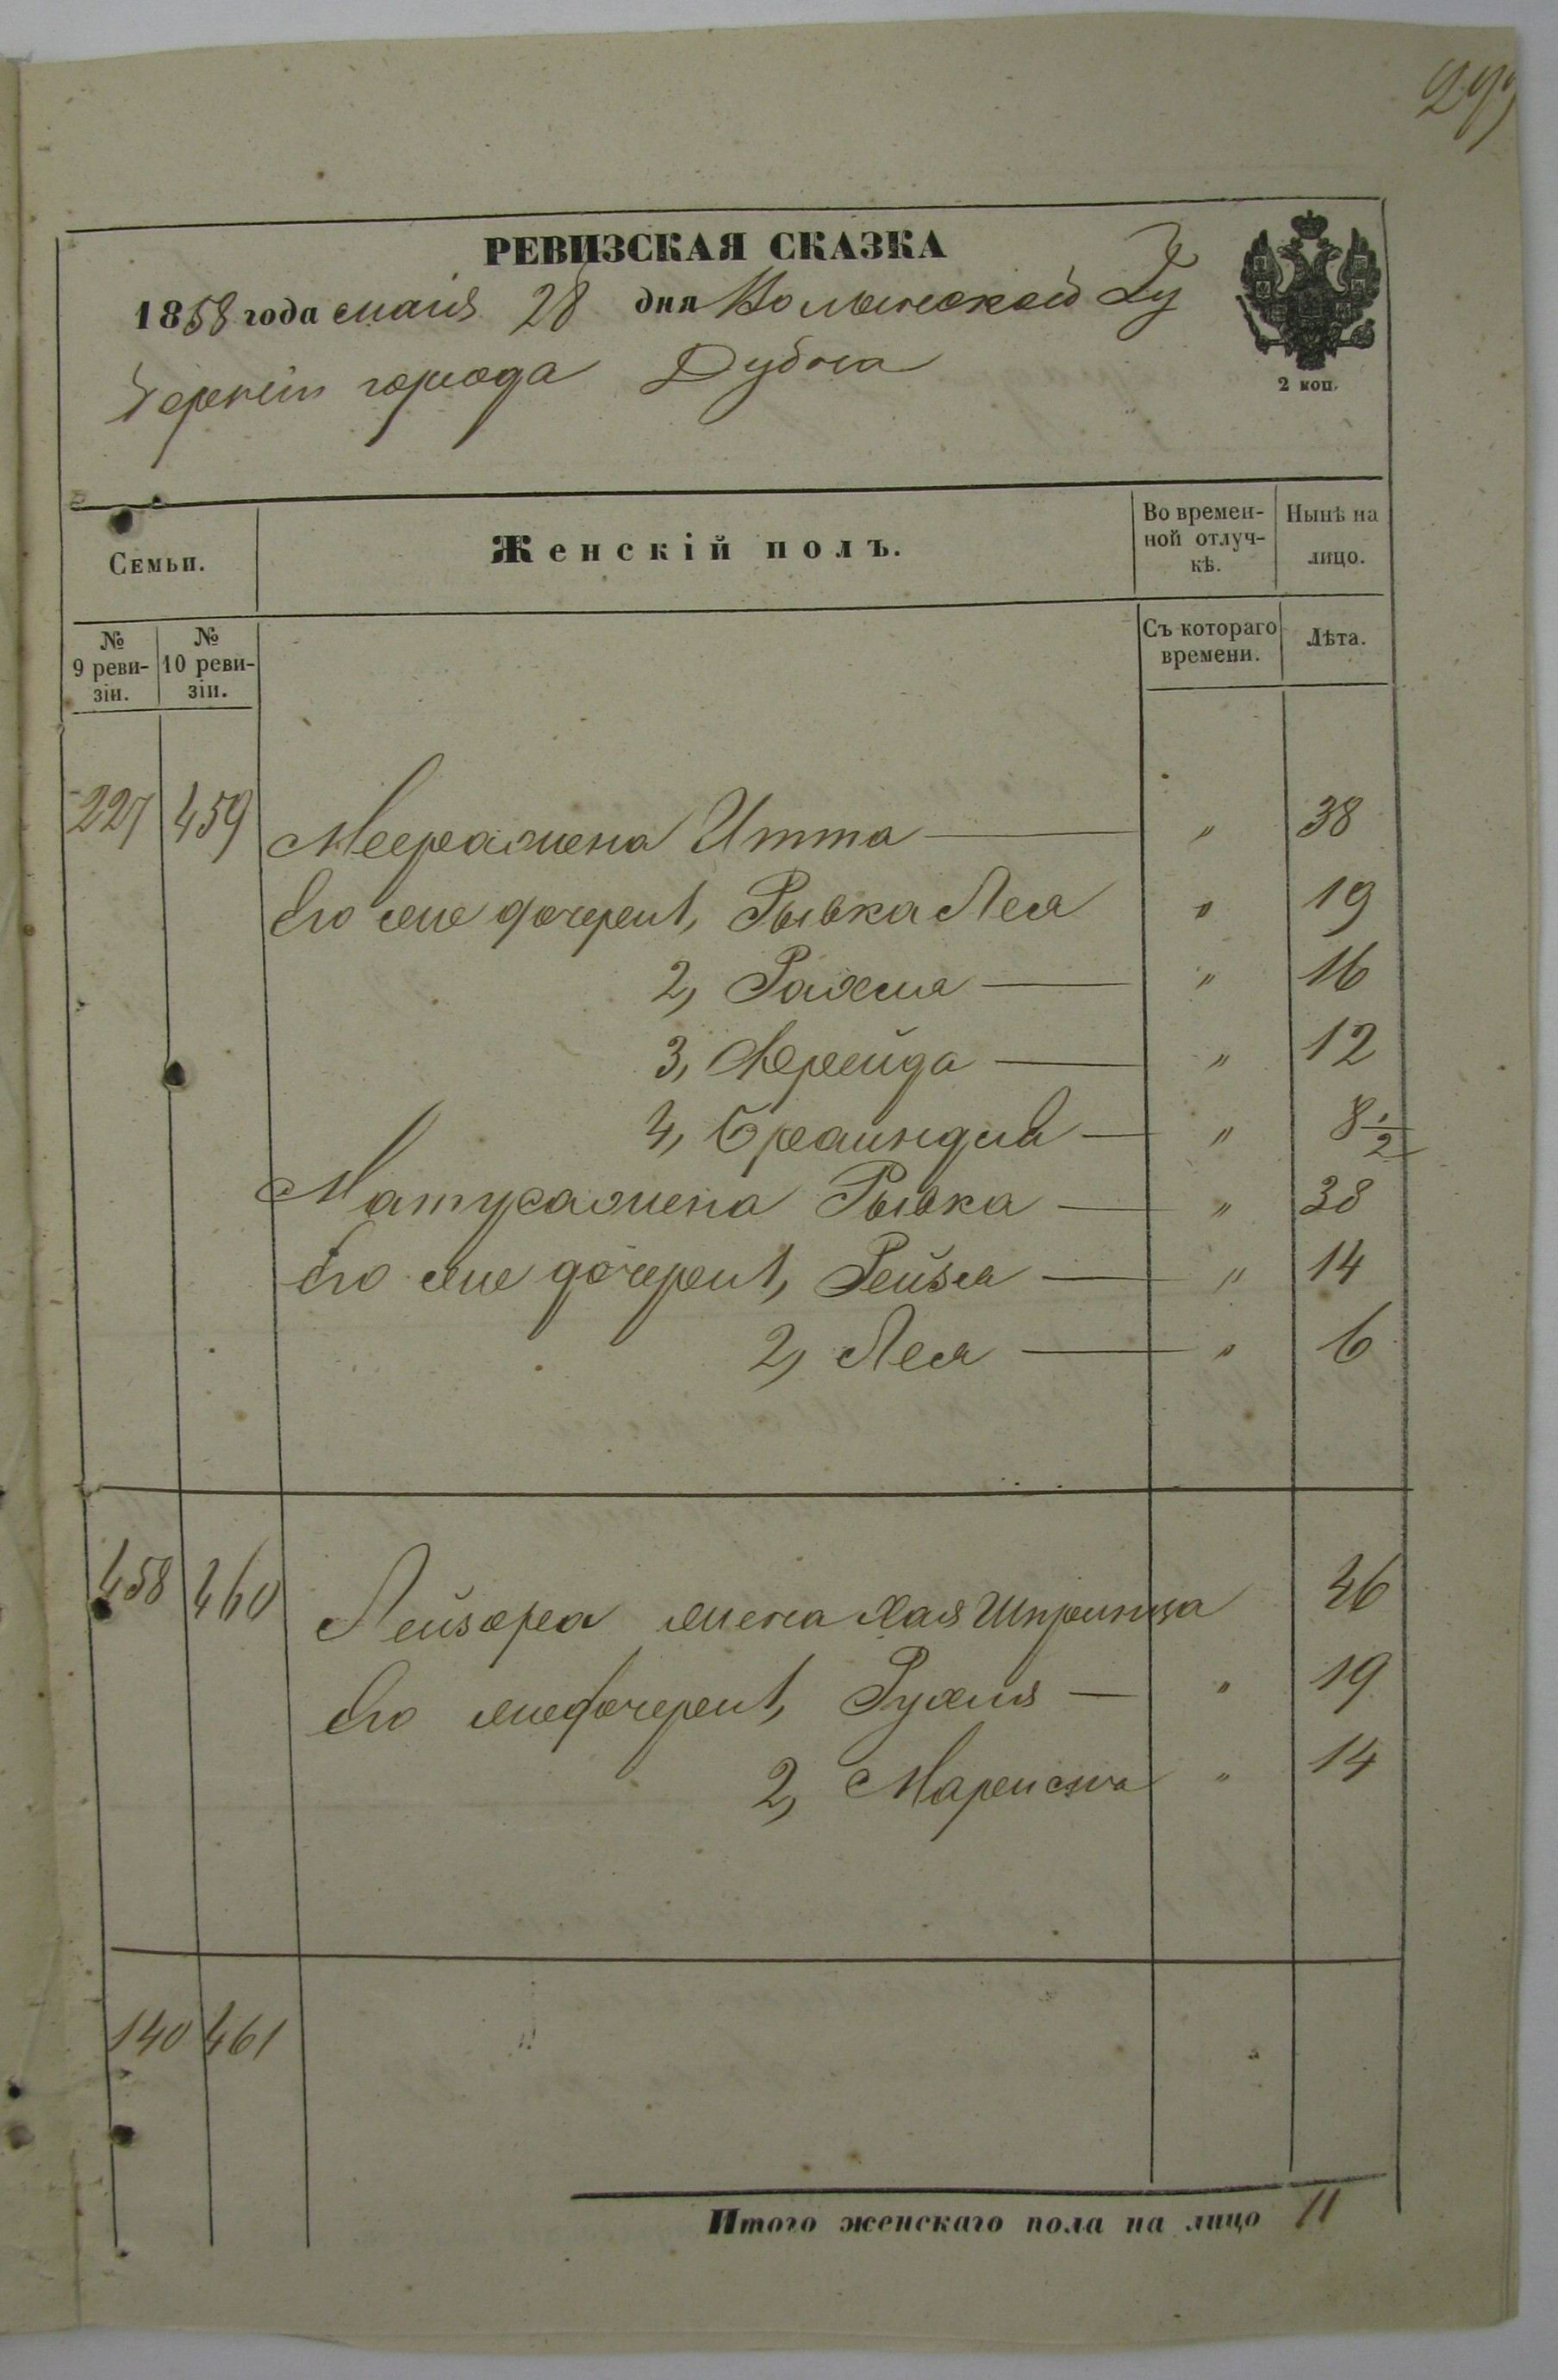 297
РЕВИЗСКАЯ СКАЗКА
1858 года маія 28 дня Волынской Гу
берніи города Дубна
2 коп.
Семьи.
Женскій полъ.
Во времен-
ной отлуч-
кѣ.
Нынѣ на
лицо.
№
9 реви-
зіи.
№
10 реви-
зіи.
Съ котораго
времени.
Лѣта.
227 459 Меера жена Итта — " 38
Его же дочери 1, Рывка Лея " 19
2, Рахля — " 16
3, Фрейда — " 12
4, Браиндля — " 8 1/2
Матуса жена Рывка — " 38
Его же дочери 1, Рейзя — " 14
2, Лея — " 6
458 460 Лейзора жена Хая Шпринца 46
Его же дочери 1, Рухля — " 19
2, Марися " 14
140 461
Итого женскаго пола на лицо 11